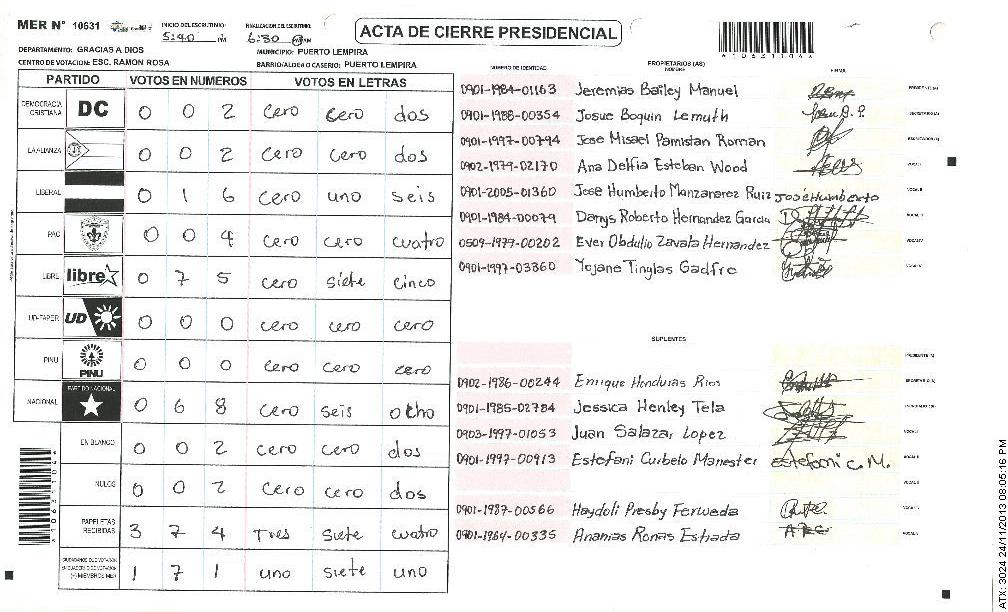 MER N° 10631
INICIO DEL ESCRUTINIO: 5:40 PM
FINALIZACION DEL ESCRUTINIO: 6:30 PM
ACTA DE CIERRE PRESIDENCIAL
DEPARTAMENTO: GRACIAS A DIOS
MUNICIPIO: PUERTO LEMPIRA
CENTRO DE VOTACION: ESC. RAMON ROSA
BARRIO/ALDEA O CASERIO: PUERTO LEMPIRA
PARTIDO VOTOS EN NUMEROS VOTOS EN LETRAS
DEMOCRACIA CRISTIANA DC 0 0 2 cero cero dos
LA ALIANZA 0 0 2 cero cero dos
LIBERAL 0 1 6 cero uno seis
PAC 0 0 4 cero cero cuatro
LIBRE libre 0 7 5 cero siete cinco
UD-FAPER UD 0 0 0 cero cero cero
PINU PINU 0 0 0 cero cero cero
NACIONAL PARTIDO NACIONAL 0 6 8 cero seis otho
EN BLANCO 0 0 2 cero cero dos
NULOS 0 0 2 cero cero dos
PAPELETAS RECIBIDAS 3 7 4 Tres siete cuatro
(+) MIEMBROS MER 1 7 1 uno siete uno
NUMERO DE IDENTIDAD PROPIETARIOS (AS) NOMBRE FIRMA
0901-1984-01163 Jeremias Bailey Manuel PRESIDENTE (A)
0901-1988-00354 Josue Boquin Lemuth SECRETARIO (A)
0901-1997-00794 Jose Misael Pamistan Roman ESCRUTADOR (A)
0902-1979-02170 Ana Delfia Esteban Wood VOCAL I
0901-2005-01360 Jose Humberto Manzanarez Ruiz José Humberto VOCAL II
0901-1984-00079 Danys Roberto Hernandez Garcia VOCAL III
0509-1977-00202 Ever Obdulio Zavala Hernandez VOCAL IV
0901-1997-03860 Yojane Tinglas Gadfre VOCAL V
SUPLENTES
PRESIDENTE (A)
0902-1986-00244 Enrique Honduras Rios SECRETARIO (A)
0901-1985-02784 Jessica Henley Tela ESCRUTADOR (A)
0903-1997-01053 Juan Salazar Lopez VOCAL I
0901-1997-00913 Estefani Curbelo Manester Estefani C. M. VOCAL II
VOCAL III
0901-1987-00566 Haydoli Presby Ferweda VOCAL IV
0901-1964-00335 Ananias Ronas Estrada VOCAL V
A106311046
ATX: 3024 24/11/2013 08:05:16 PM